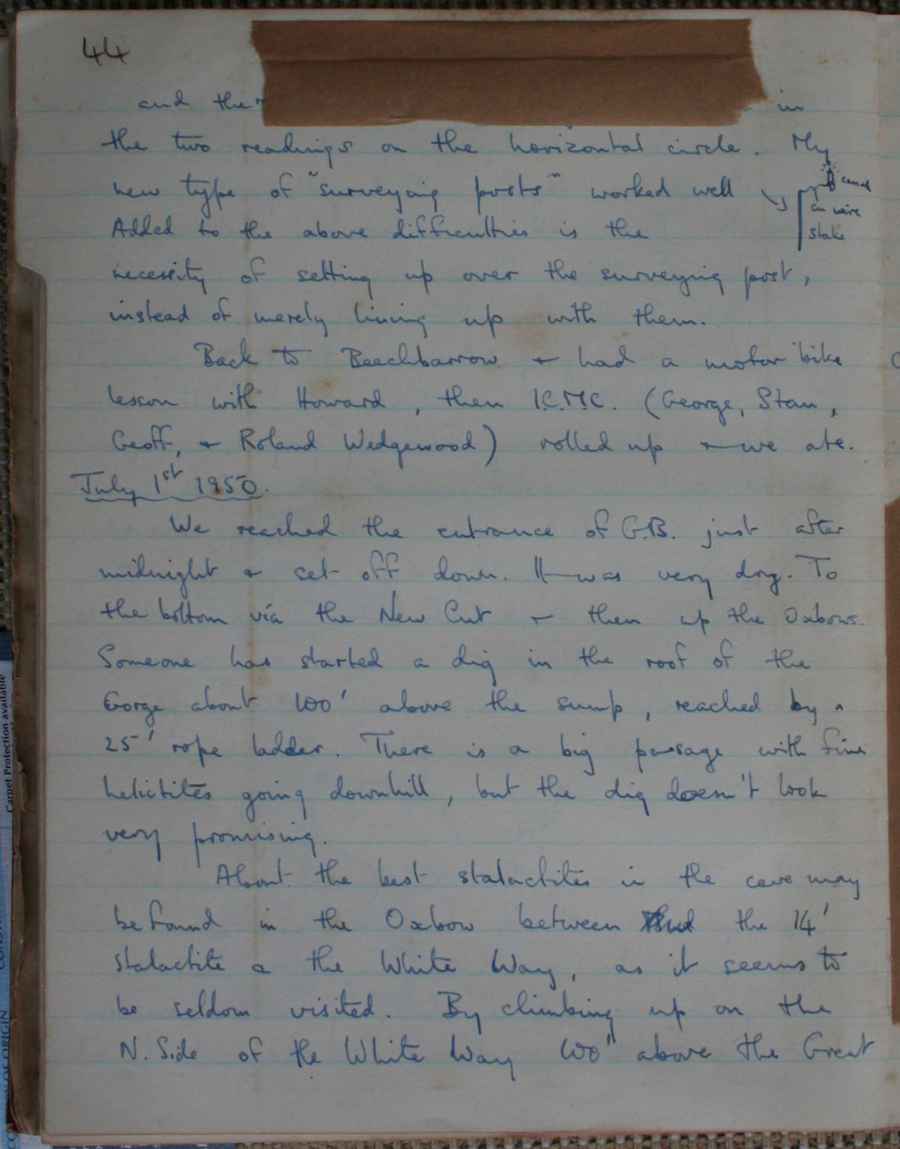 44
and the in
the two readings on the horizontal circle. My
new type of "surveying posts" worked well
on wire
Added to the above difficulties is the
necessity of setting up over the surveying post,
instead of merely lining up with them.
Back to Beechbarrow + had a motor bike
lesson with Howard, then I.C.M.C. (George, Stan,
Geoff, + Roland Wedgewood) rolled up + we ate.
July 1st 1950.
We reached the entrance of G.B. just after
midnight + set off down. It was very dry. To
the bottom via the New Cut + then up the Oxbows.
Someone has started a dig in the roof of the
Gorge about 100' above the sump, reached by a
25' rope ladder. There is a big passage with fine
helictites going downhill, but the dig doesn't look
very promising.
About the best stalactites in the cave may
be found in the Oxbow between the 14'
stalactite + the White Way, as it seems to
be seldom visited. By climbing up on the
N. Side of the White Way 100" above the Great
Carpet Protection available